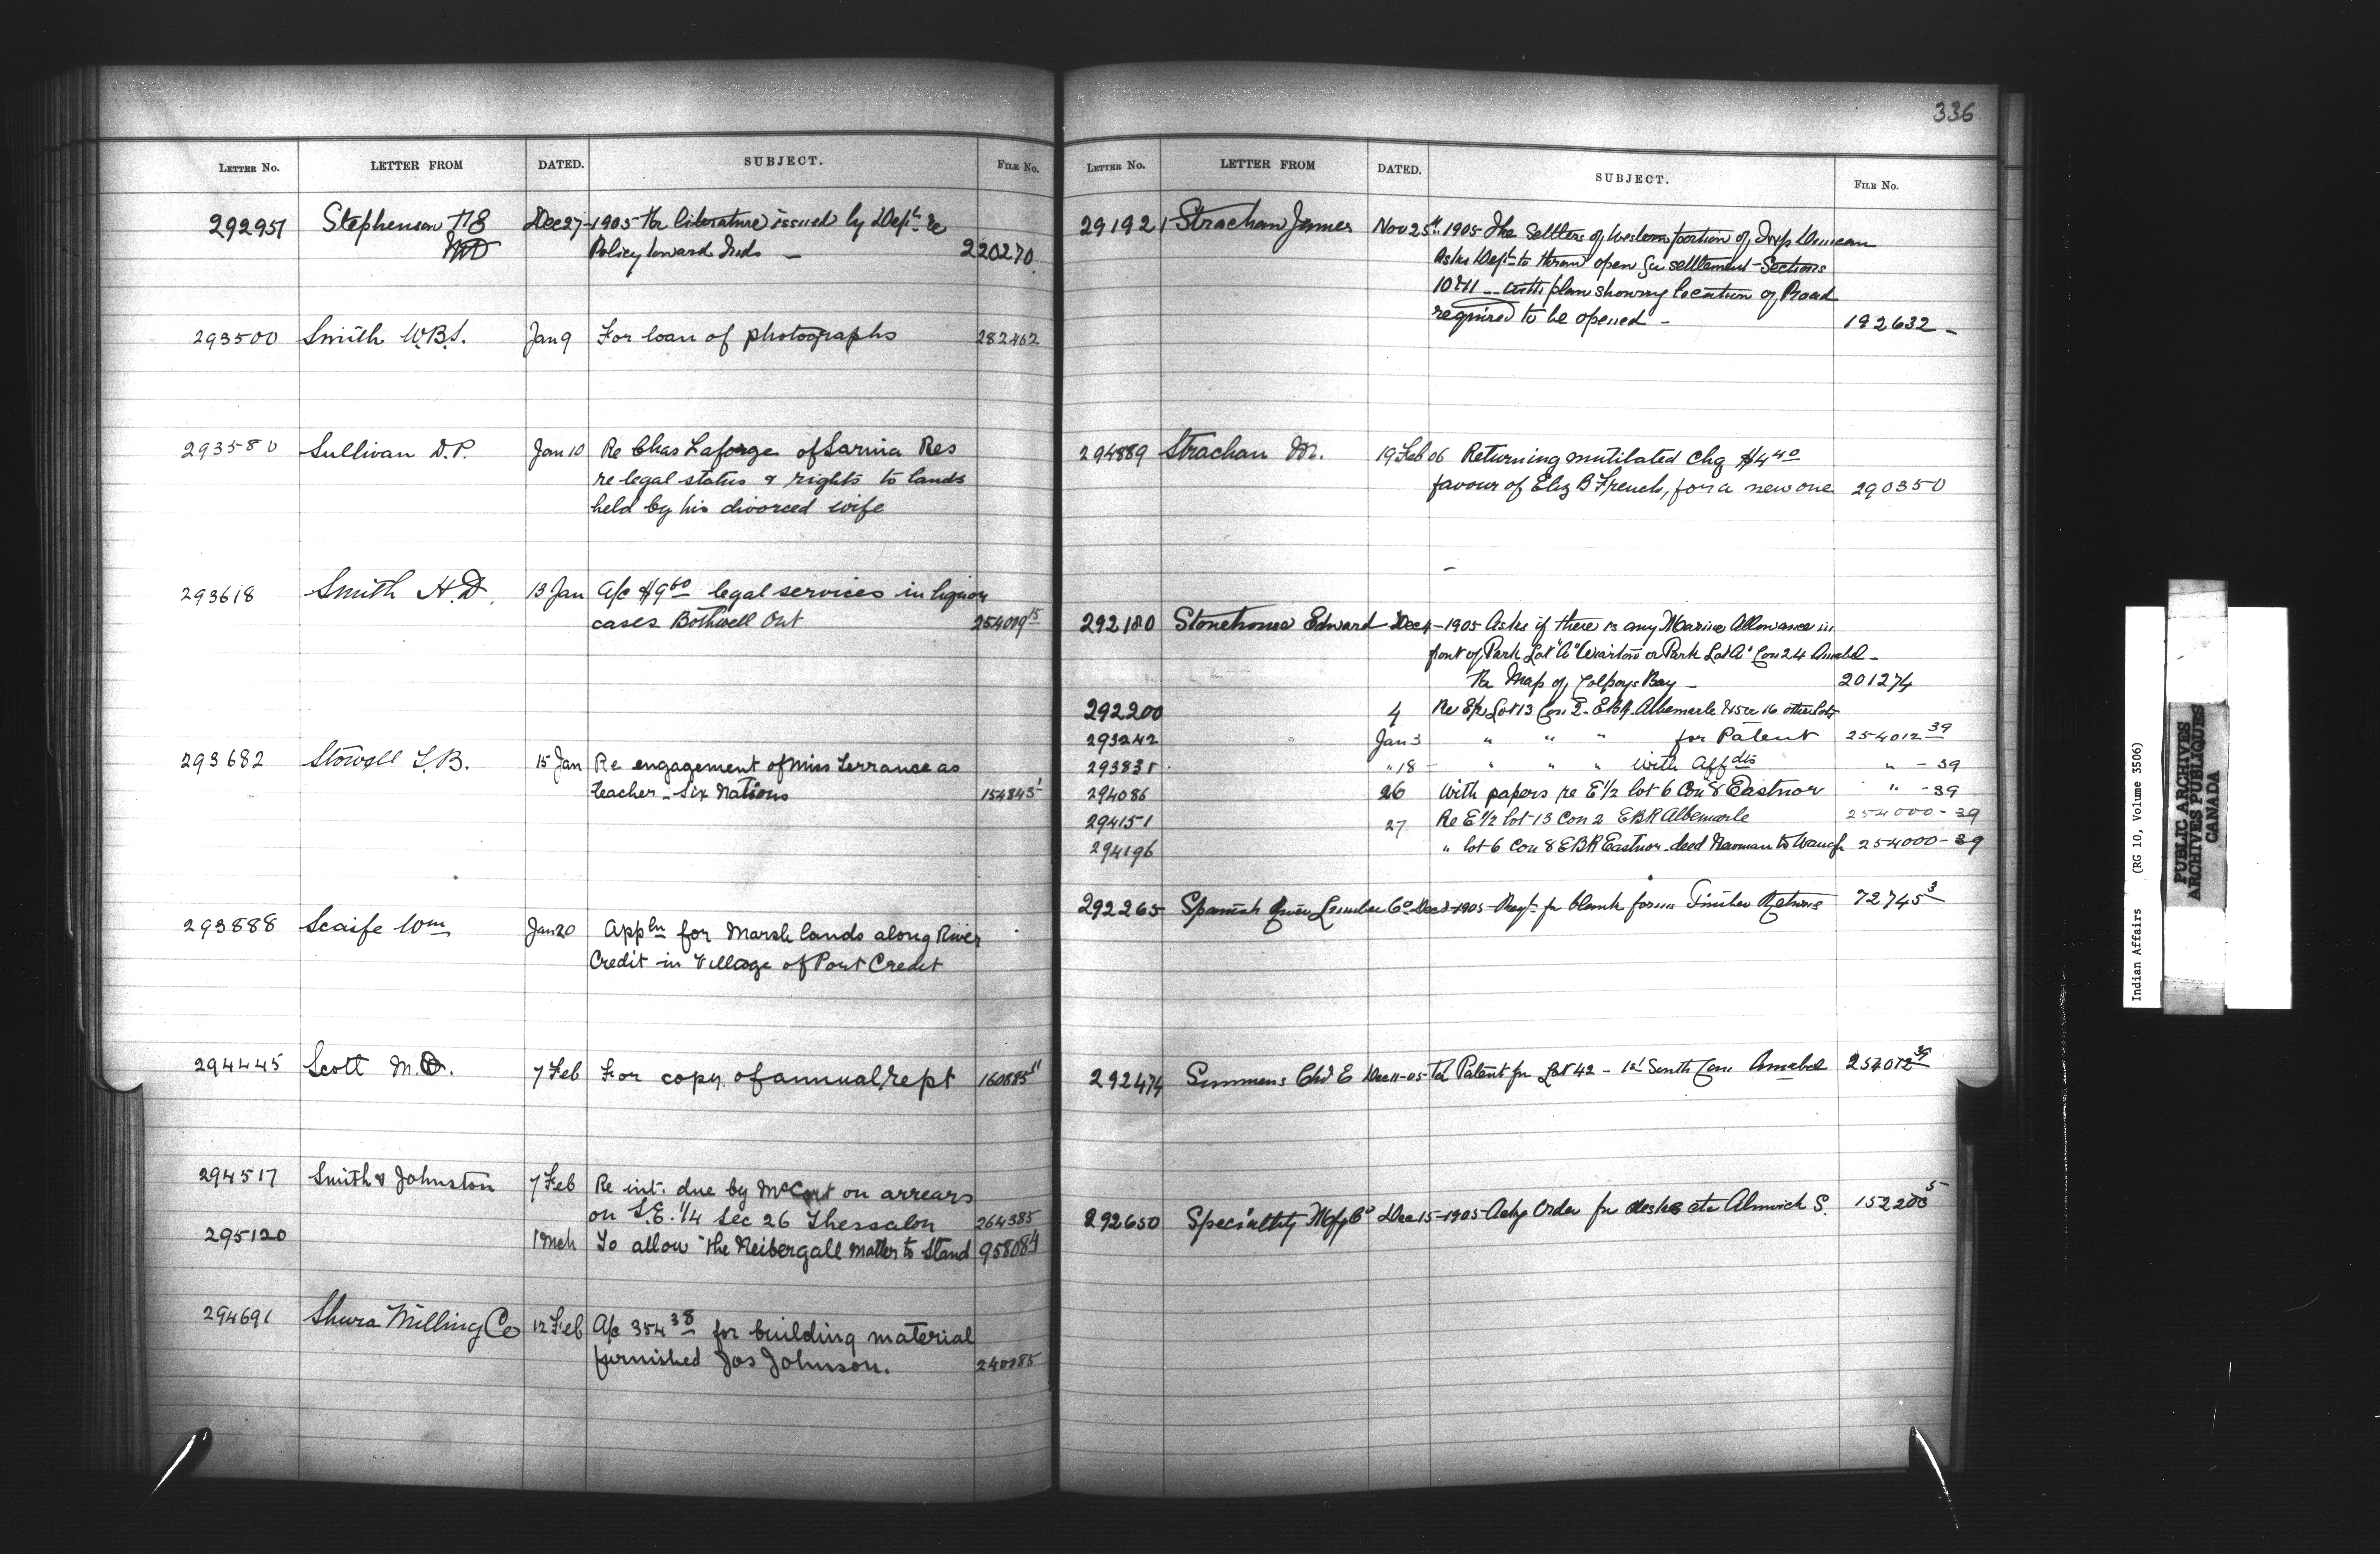 336
LETTER No. LETTER FROM DATED. SUBJECT. FILE No.
292951 Stephenson Dec 27-1905 for literature issued by Dept. re
Policy toward Inds — 220270
293500 Smith W.B.S. Jan 9 For loan of photographs 282462
293580 Sullivan D.P. Jan 10 Re Chas Laforge of Sarnia Res
re legal status & rights to lands
held by his divorced wife
293618 Smith H.D. 13 Jan A/c $9 60 legal services in liquor
cases Bothwell Ont 254009 15
293682 Stowell 15 Jan Re engagement of Miss Terrance as
teacher - Six Nations 154845
293888 Scaife Wm Jan 20 Appln for Marsh lands along River
Credit in Village of Port Credit
294445 Scott M. 7 Feb For copy of annual rept 160885 11
294517 Smith & Johnston 7 Feb Re int. due by on arrears
on S.E. 1/4 Sec 26 Thessalon 264385
295120 1 Mch To allow the Neibergall matter to stand
294691 Milling Co 12 Feb A/c 354 38 for building material
furnished Jos Johnson.
LETTER No. LETTER FROM DATED. SUBJECT. FILE No.
291921 Strachan James Nov 25th 1905 The Settlers of Western portion of Twp Duncan
asks Dept to throw open for settlement - Sections
10 & 11 — with plan showing location of Road
required to be opened — 192632 —
294889 Strachan 19 Feb 06 Returning mutilated chq $4 40
favour of Eliz B French, for a new one 290350
292180 Stonehouse Edward Dec 4-1905 Asks if there is any Marine Allowance in
front of Park Lot "A" Wiarton or Park Lot "A" Con 24 Amabel —
for Map of Colpoys Bay — 201274
292200 4 Re E/2 Lot 13 Con 2 - EBR Albemarle & 15 or 16 other lots
293242 Jan 3 " " " for Patent 254012 39
293835 " 18 — " " " with Affdts " — 39
294086 26 With papers re E 1/2 lot 6 Con 8 Eastnor " — 39
294151 27 Re E 1/2 lot 13 Con 2 EBR Albemarle 254000 - 39
294196 " lot 6 Con 8 EBR Eastnor deed Newman to 254000 - 39
292265 Spanish River Lumber Co Dec 1905 Reqt. for blank forms Timber Returns 72745 3
292474 Simmons Chs E Dec 11-05 for Patent for Lot 42 - 1st South Con Amabel 254012 39
292650 Specialty Mfg Co Dec 15-1905 Ackg Order for desks etc Alnwick S. 152200 5
Indian Affairs (RG 10, Volume 3506)
PUBLIC ARCHIVES
ARCHIVES PUBLIQUES
CANADA